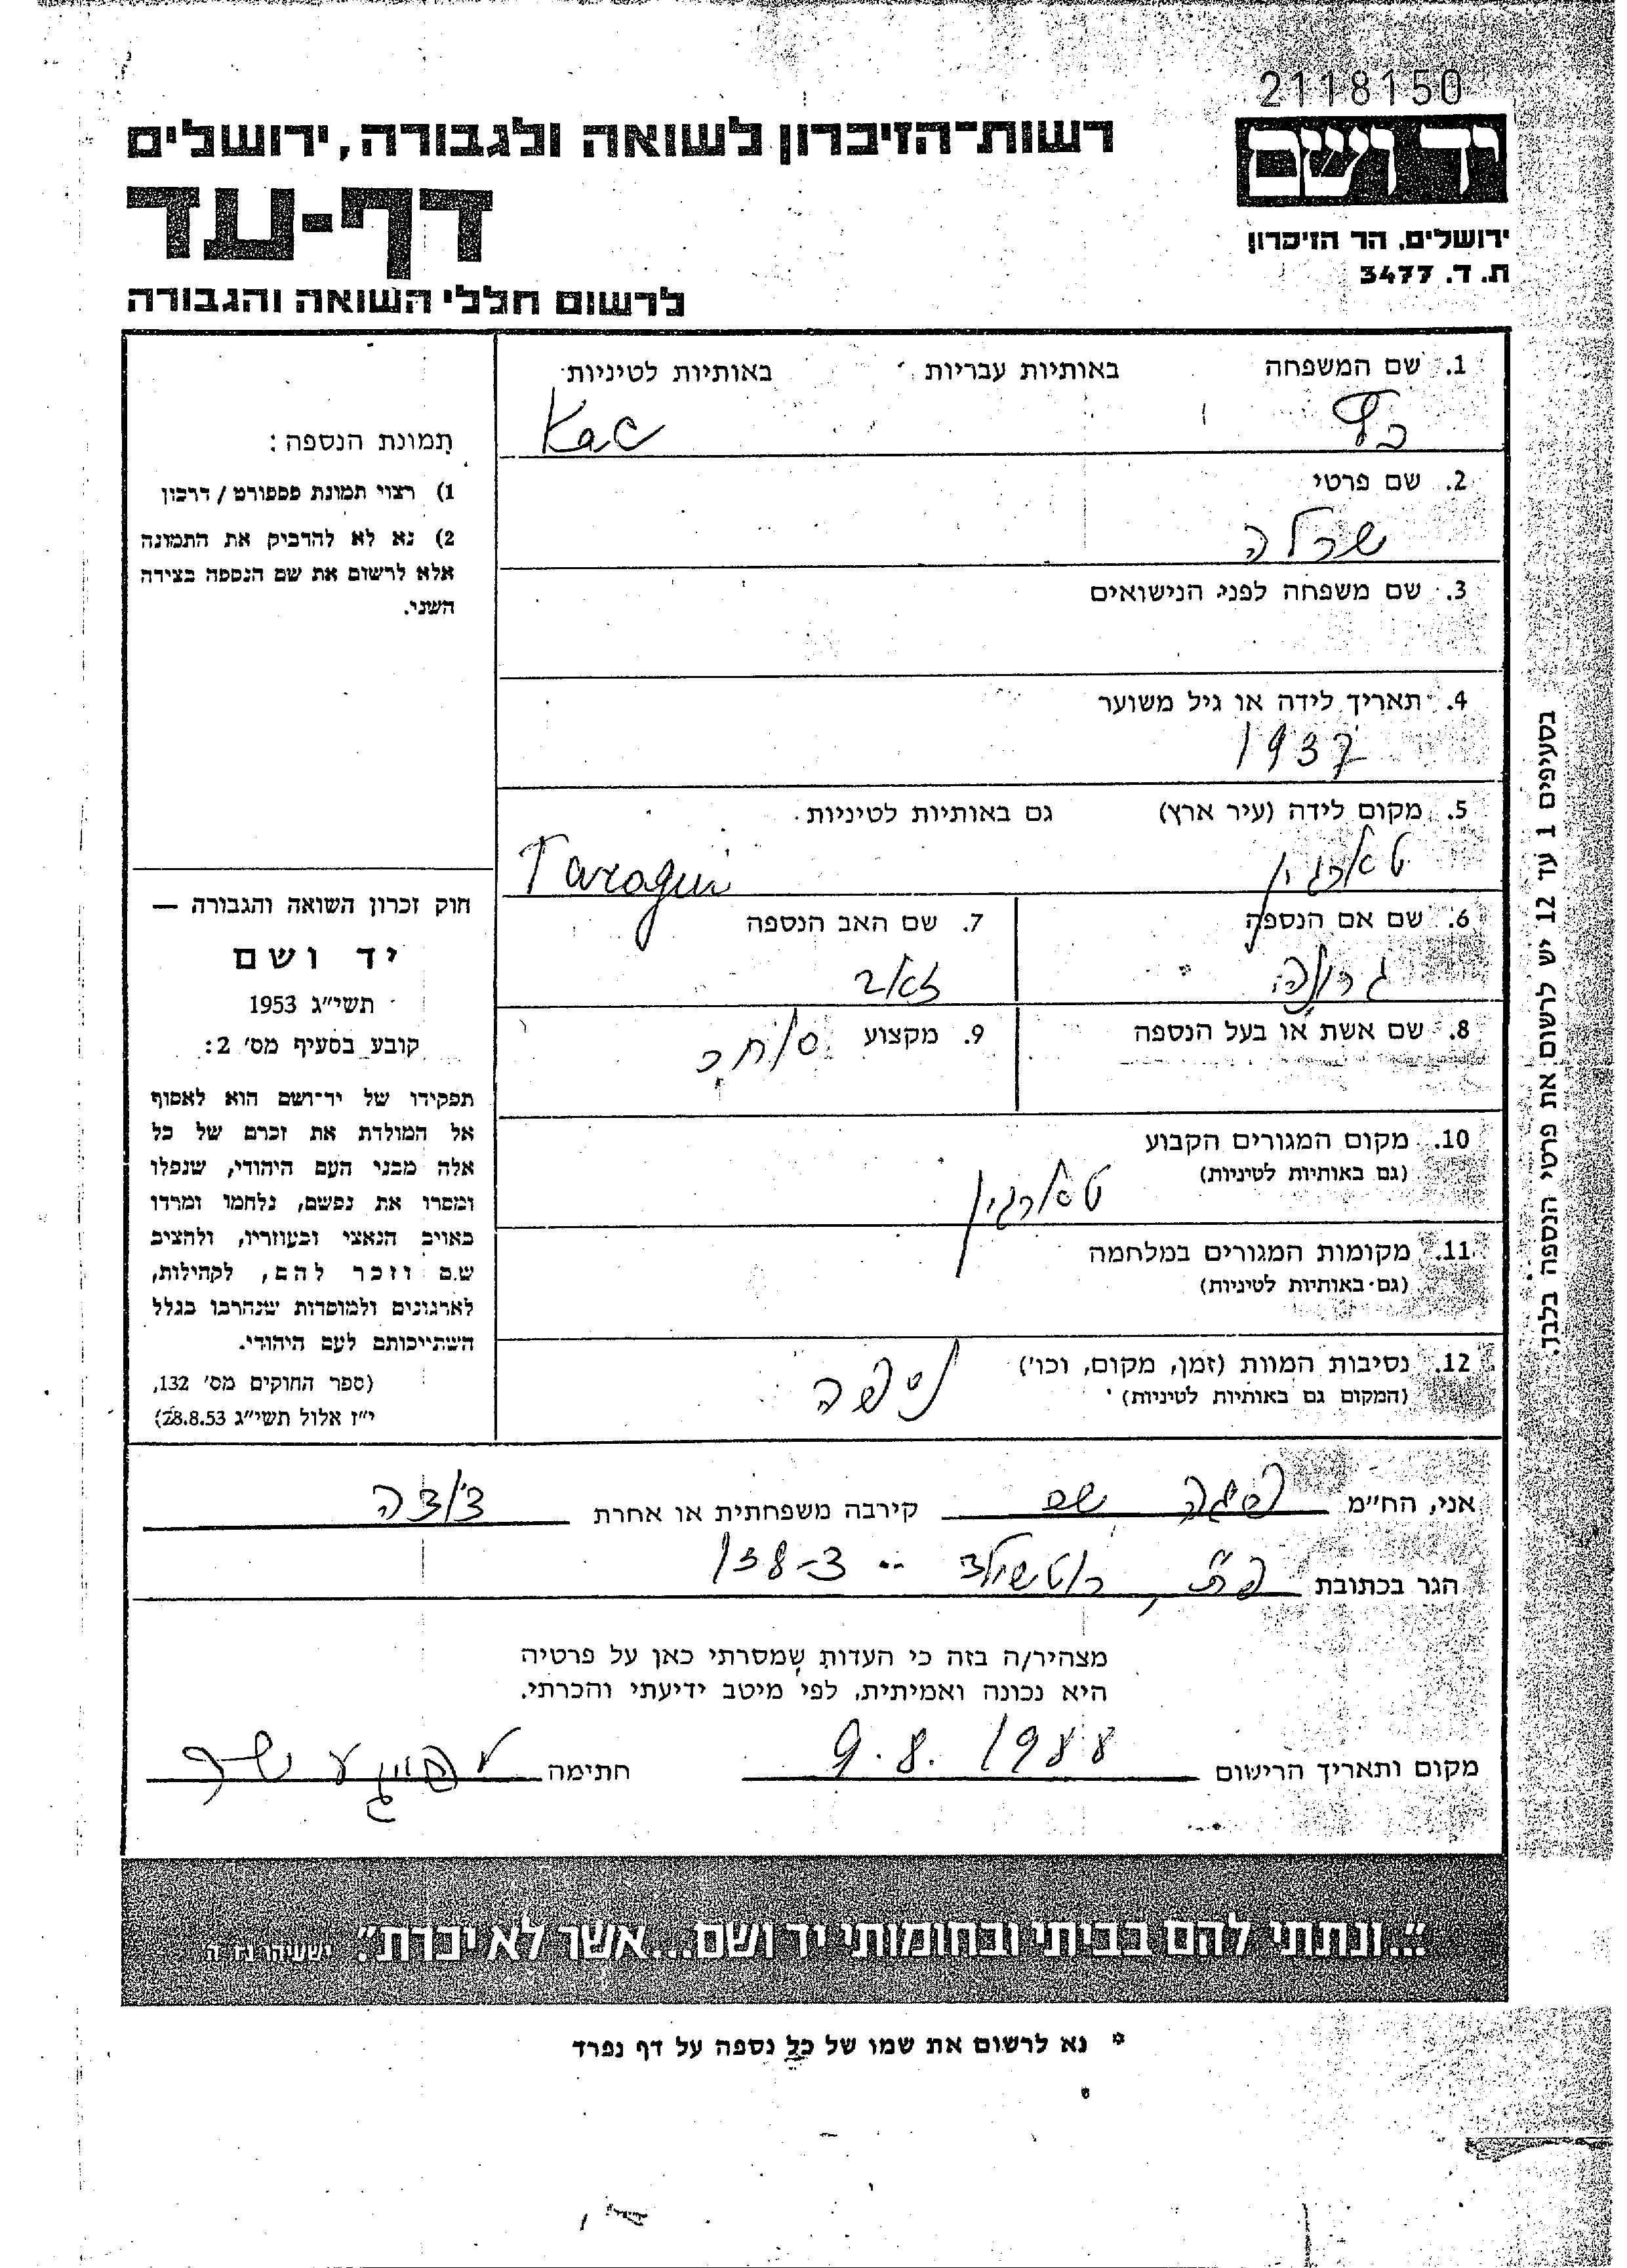 2118150
יד ושם
רשות-הזיכרון לשואה ולגבורה, ירושלים
דף-עד
לרשום חללי השואה והגבורה
ירושלים, הר הזיכרון
ת. ד. 3477
1. שם המשפחה באותיות עבריות באותיות לטיניות
כץ Kac
2. שם פרטי
שרלה
3. שם משפחה לפני הנישואים
4. תאריך לידה או גיל משוער
1937
5. מקום לידה (עיר ארץ) גם באותיות לטיניות
טארגין Taragin
6. שם אם הנספה 7. שם האב הנספה
זאב
8. שם אשת או בעל הנספה 9. מקצוע סוחר
10. מקום המגורים הקבוע
(גם באותיות לטיניות)
טארגין
11. מקומות המגורים במלחמה
(גם באותיות לטיניות)
12. נסיבות המוות (זמן, מקום, וכו')
(המקום גם באותיות לטיניות)
ניספה
תמונת הנספה:
1) רצוי תמונת פספורט / דרכון
2) נא לא להדביק את התמונה
אלא לרשום את שם הנספה בצידה
השני.
חוק זכרון השואה והגבורה —
יד ושם
תשי״ג 1953
קובע בסעיף מס' 2:
תפקידו של יד־ושם הוא לאסוף
אל המולדת את זכרם של כל
אלה מבני העם היהודי, שנפלו
ומסרו את נפשם, נלחמו ומרדו
באויב הנאצי ובעוזריו, ולהציב
שם וזכר להם, לקהילות,
לארגונים ולמוסדות שנהרבו בגלל
השתייכותם לעם היהודי.
(ספר החוקים מס' 132,
י״ז אלול תשי״ג 28.8.53)
בסעיפים 1 עד 12 יש לרשום את פרטי הנספה בלבד.
אני, הח״מ קירבה משפחתית או אחרת דודה
הגר בכתובת פ״ת, רוטשילד
מצהיר/ה בזה כי העדות שמסרתי כאן על פרטיה
היא נכונה ואמיתית, לפי מיטב ידיעתי והכרתי.
מקום ותאריך הרישום 9.8.1988 חתימה
״...ונתתי להם בביתי ובחומותי יד ושם...אשר לא יכרת״. ישעיהו נו ה
* נא לרשום את שמו של כל נספה על דף נפרד